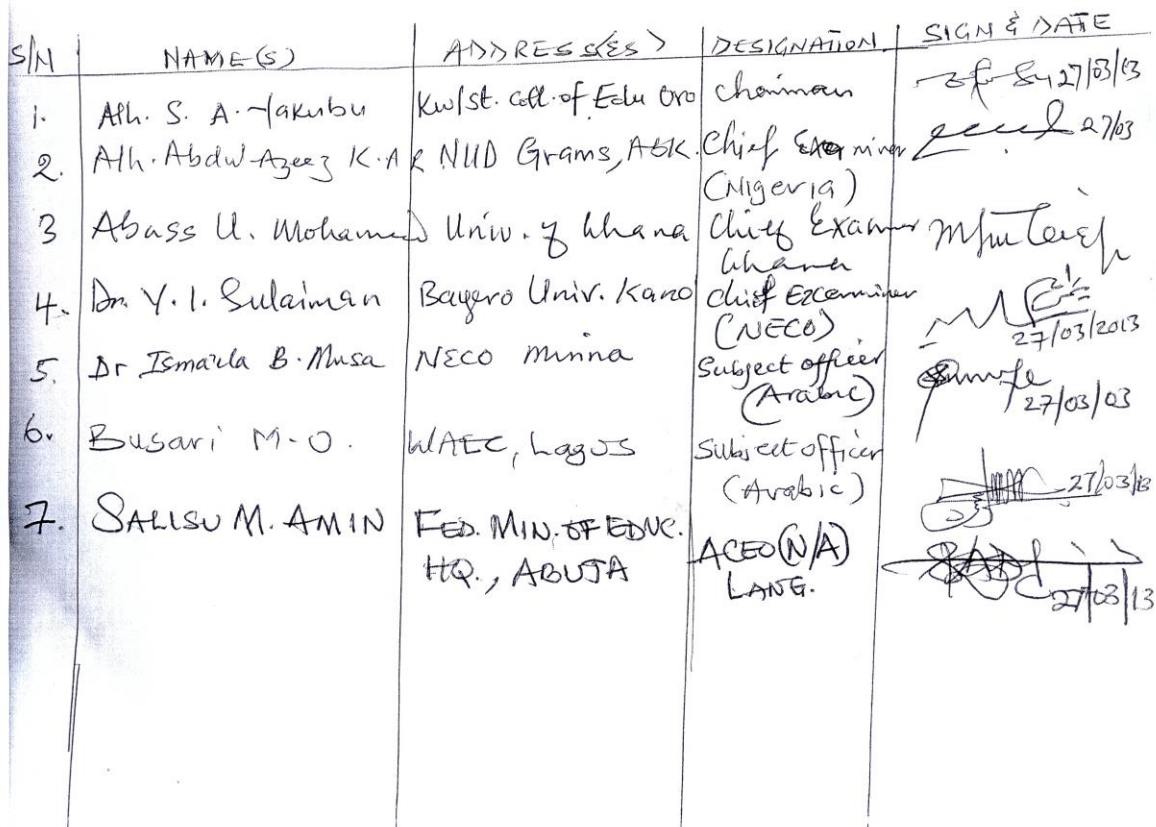 S/N NAME(S) ADDRESS(ES) DESIGNATION SIGN & DATE
1. Alh. S. A. Yakubu Kw/St. Coll. of Edu Oro Chairman 27/03/13
2. Alh. Abdul-Azeez K. A NUD Grams, ABK. Chief Examiner 27/03
(Nigeria)
3 Abass U. Mohamed Univ. of Ghana Chief Examiner
Ghana
4. Dr. Y. I. Sulaiman Bayero Univ. Kano Chief Examiner
(NECO) 27/03/2013
5. Dr Ismaila B. Musa NECO Minna Subject officer
(Arabic) 27/03/03
6. Busari M.O. WAEC, Lagos Subject officer
(Arabic) 27/03/13
7. SALISU M. AMIN FED. MIN. OF EDUC. ACEO (N/A)
HQ., ABUJA LANG. 27/03/13